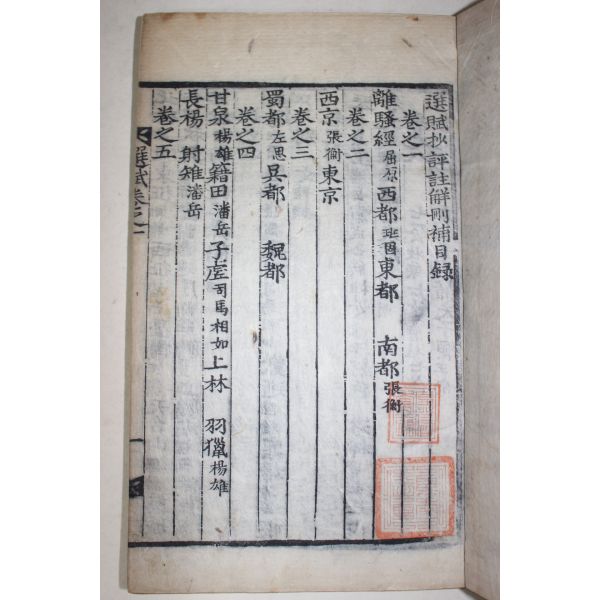 選賦抄評註解刪補目錄
卷之一
離騷經 屈原 西都 班固 東都 南都 張衡
卷之二
西京 張衡 東京
卷之三
蜀都 左思 吳都 魏都
卷之四
甘泉 楊雄 籍田 潘岳 子虛 司馬相如 上林 羽獵 楊雄
長楊 射雉 潘岳
卷之五
選賦卷之一